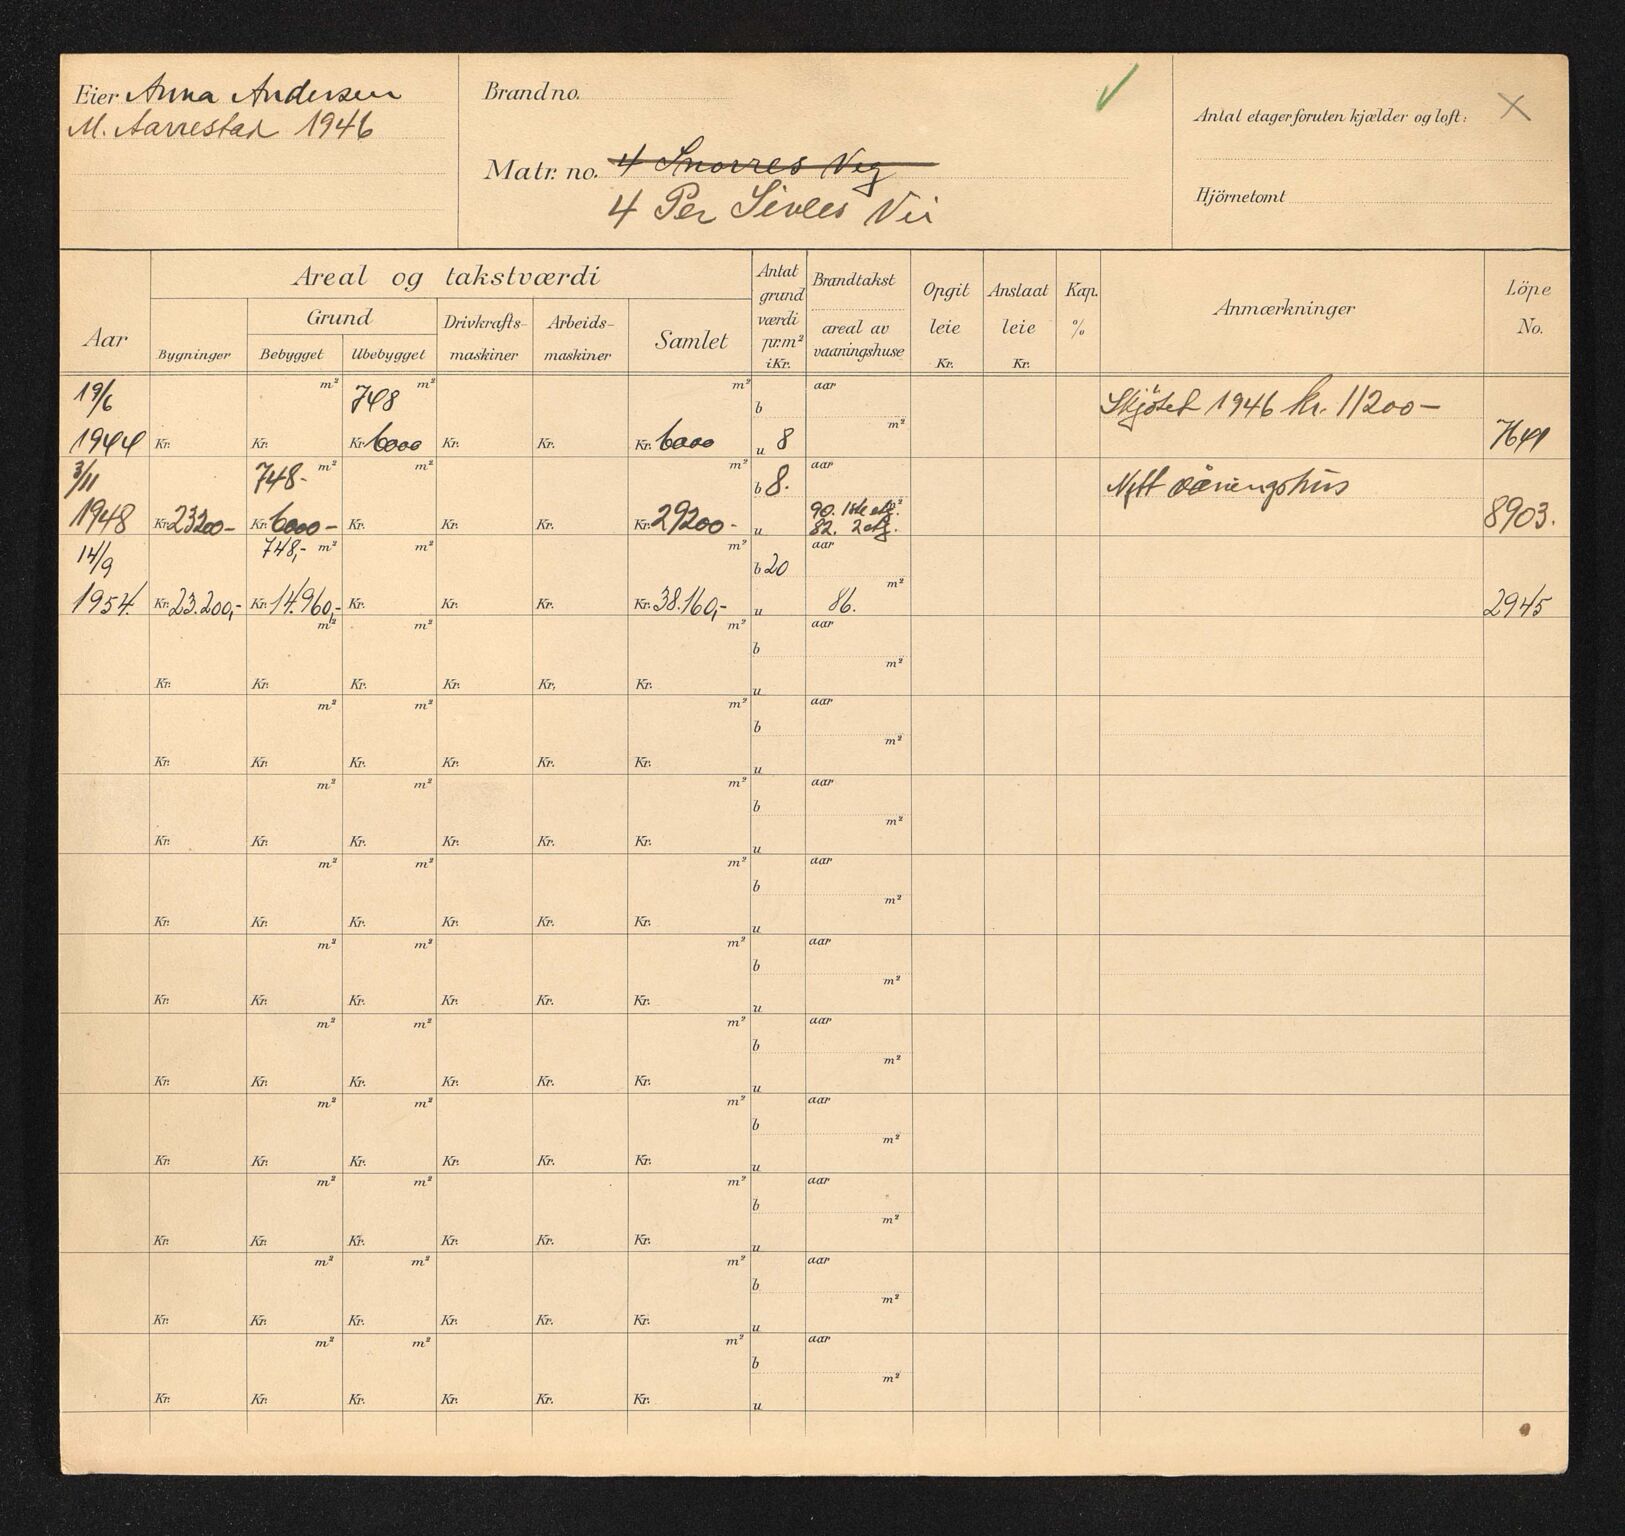 Eier Anna Andersen
M. Aarrestad 1946
Brand no.
Matr. no. 4 Snorres Veg
4 Per Sivles Vei
Antal etager foruten kjælder og loft:
Hjörnetomt
Aar
Areal og takstværdi
Grund
Bygninger
Bebygget
Ubebygget
Drivkrafts-
maskiner
Arbeids-
maskiner
Samlet
Antal
grund
værdi
pr.m²
i Kr.
Brandtakst
areal av
vaaningshuse
Opgit
leie
Kr.
Anslaat
leie
Kr.
Kap.
%
Anmærkninger
Löpe
No.
19/6 m² 748 m² m² b aar Skjötet 1946 kr. 11200-
1944 Kr. Kr. Kr. 6000 Kr. Kr. Kr. 6000 u 8 m² 7641
3/11 748- m² m² m² b 8. aar Nytt våningshus
1948 Kr. 23200- Kr. 6000- Kr. Kr. Kr. Kr. 29200- u 90. 1ste etg. m² 8903.
82. 2 etg.
14/9 748,- m² m² m² b 20 aar
1954. Kr. 23.200,- Kr. 14.960,- Kr. Kr. Kr. Kr. 38.160,- u 86. m² 2945
m² m² m² b aar
Kr. Kr. Kr. Kr. Kr. Kr. u m²
m² m² m² b aar
Kr. Kr. Kr. Kr. Kr. Kr. u m²
m² m² m² b aar
Kr. Kr. Kr. Kr. Kr. Kr. u m²
m² m² m² b aar
Kr. Kr. Kr. Kr. Kr. Kr. u m²
m² m² m² b aar
Kr. Kr. Kr. Kr. Kr. Kr. u m²
m² m² m² b aar
Kr. Kr. Kr. Kr. Kr. Kr. u m²
m² m² m² b aar
Kr. Kr. Kr. Kr. Kr. Kr. u m²
m² m² m² b aar
Kr. Kr. Kr. Kr. Kr. Kr. u m²
m² m² m² b aar
Kr. Kr. Kr. Kr. Kr. Kr. u m²
m² m² m² b aar
Kr. Kr. Kr. Kr. Kr. Kr. u m²